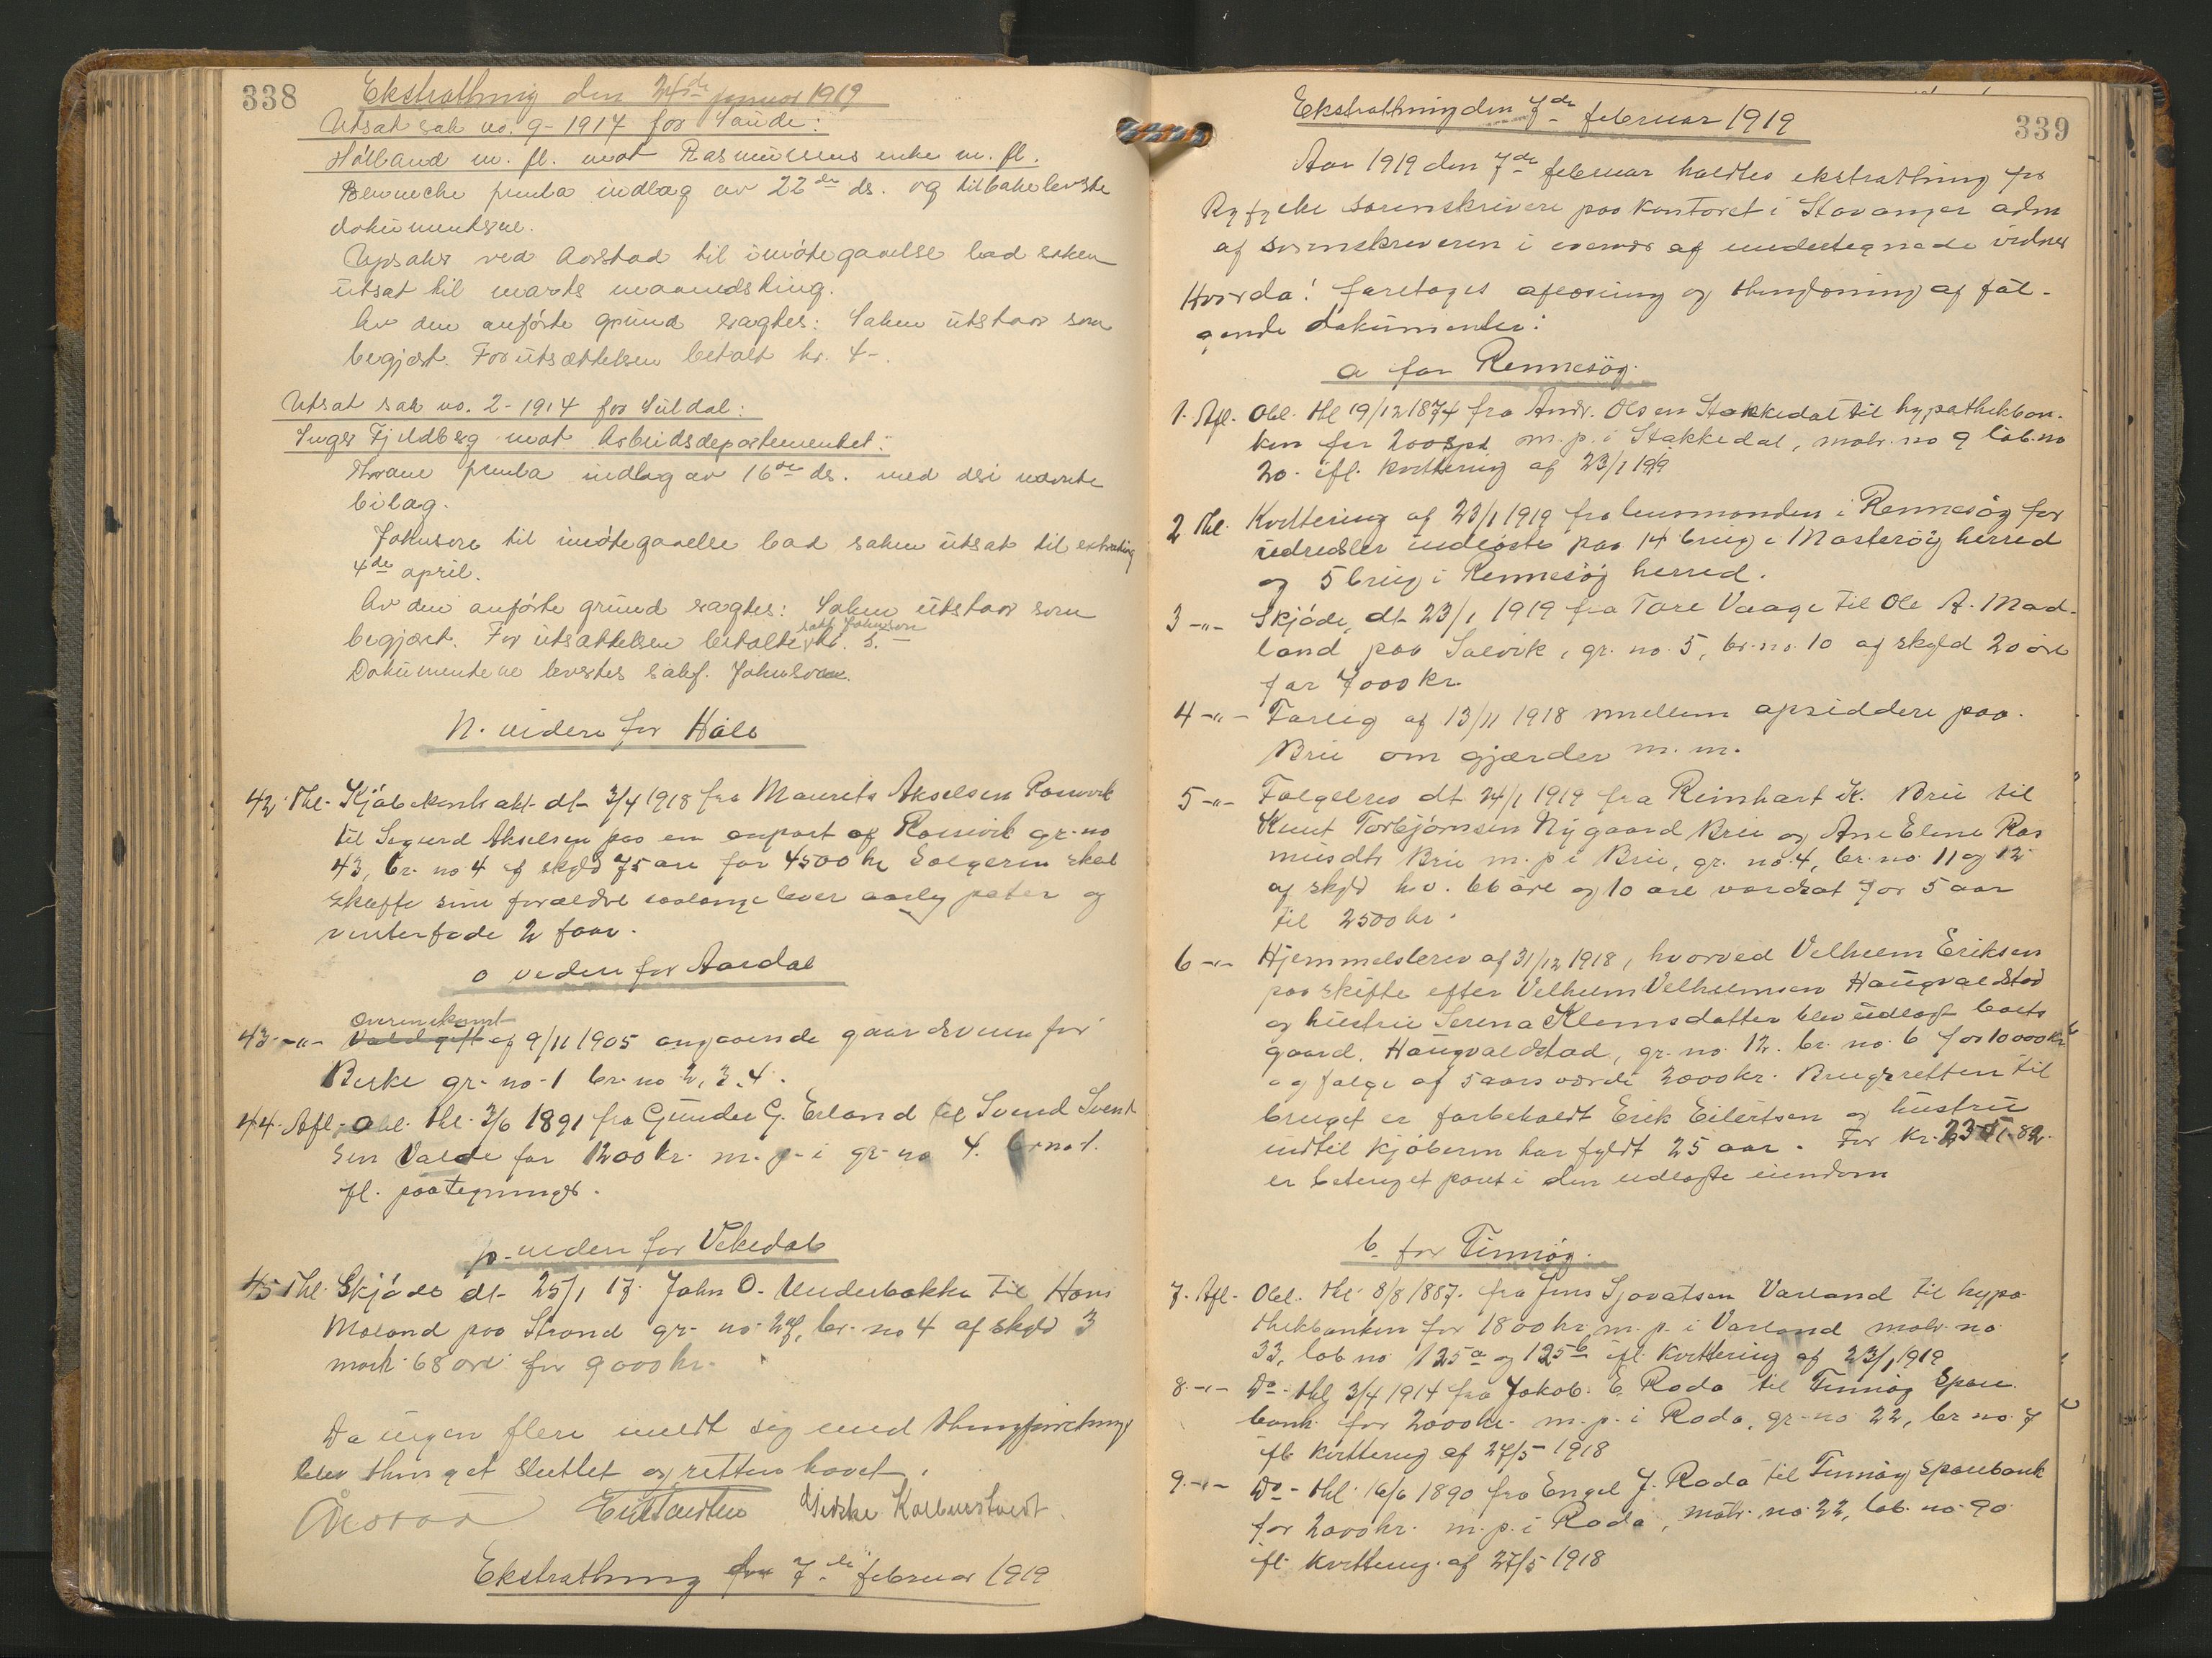 338
Ekstrathing den 24de januar 1919
Utsat sak no. 9-1917 for Saude:
Hólland m. fl. mot Rasmussens enke m. fl.
Benneche frmla indlæg av 22de ds. og tilbakeleverte
dokumenterne.
Upsaker ved Aarstad til imøtegaaelse bad saken
utsat til marts maanedsting.
Av den anførte grund vagtes: Saken utstaar som
begjært. For utsættelsen betalt kr. 4-.
Utsat sak no. 2-1914 for Suldal:
Inger Fjeldberg mot Arbeidsdepartementet:
Thrane frmla indlæg av 16de ds. med deri nævnte
bilag.
Johnsen til imøtegaaelse bad saken utsat til extrating
4de april.
Av den anførte grund vagtes: Saken utstaar som
begjært. For utsættelsen betalte sakf. Johnson kr. 5.-
Dokumentene levertes sakf. Johnson.
N. videre for Hals
42. Thl. Kjøbekontrakt dt 3/4 1918 fra Maurits Akselsen
til Sigurd Akselsen paa en anpart af gr. no
43, br. no 4 af skyld 75 øre for 4500 kr Sælgeren skal
skaffe sine forældre saalænge lever aarlig poteter og
vinterføde 2 faar.
o videre for Aardal
43 -"- Overenskomst af 9/11 1905 angaaende gaardsveien for
Berke gr. no 1 br. no 2, 3, 4.
44. Afl. Obl. thl. 3/6 1891 fra Gunder G. Erland til Svend Svend
sen Valde for 1200 kr. m. p. i gr. no 4. br no 1.
ifl. paategning.
p. videre for Vikedal
45 Thl. Skjøde dt 25/1 17. John O. Underbakke til Hans
Moland paa Strand gr. no. 27, br. no 4 af skyld 3
mark 68 øre for 9000 kr.
Da ingen flere meldt sig med thingforretning
blev thinget sluttet og retten hævet.
Aarstad
Ekstrathing 7de februar 1919
339
Ekstrathing den 7de februar 1919
Aar 1919 den 7de februar holdtes ekstrathing for
Ryfylke sorenskriveri paa kontoret i Stavanger adm
af sorenskriveren i overvær af undertegnede vidner
Hvorda: foretoges aflæsning og thinglæsning af føl-
gende dokumenter:
a for Rennesøy.
1. Afl. Obl. thl 19/12 1874 fra Andr. Olsen Stakkedal til hypothekban-
ken for 200 spd. m. p. i Stakkedal, matr. no 9 løb. no
20. ifl. kvittering af 23/1 1919
2 Thl. Kvittering af 23/1 1919 fra lensmanden i Rennesøy for
udredsler indløste paa 14 brug i Mosterøy herred
og 5 brug i Rennesøy herred.
3 -"- Skjøde, dt 23/1 1919 fra Tore Vaage til Ole A. Mad-
land paa Solvik, gr. no. 5, br. no. 10 af skyld 20 øre
for 7000 kr.
4 -"- Forlig af 13/11 1918 mellem opsiddere paa
Bru om gjærder m. m.
5 -"- Følgebrev dt 24/1 1919 fra Reinhart K. Bru til
Knut Torbjørnsen Nygaard Bru og Ane Elene Ras
musdtr Bru m. p i Bru, gr. no. 4, br. no. 11 og 12
af skyld h.v. 66 øre og 10 øre værdsat for 5 aar
til 2500 kr.
6 -"- Hjemmelsbrev af 31/12 1918, hvorved Velhelm Eriksen
paa skifte efter Velhelm Velhelmsen Haugvaldstad
og hustru Serena Klemsdatter blev udlagt boets
gaard, Haugvaldstad, gr. no. 12. br. no. 6 for 10000 kr
og følge af 5 aars værdi 2000 kr. Brugsretten til
bruget er forbeholdt Erik Eilertsen og hustru
indtil kjøberen har fyldt 25 aar. For kr.
er betinget pant i den udlagte eiendom
b for Finnøy.
7. Afl. Obl. thl 8/8 1887. fra Jens Sjovatsen Varland til hypo
thekbanken for 1800 kr m. p. i Varland matr. no
33, løb no 125a og 125b ifl. kvittering af 23/1 1919
8. -"- Do. thl 3/4 1914 fra Jakob E. Roda til Finnøy Spare
bank for 2000 kr. m. p. i Roda, gr. no 22, br no. 7
ifl. kvittering af 27/5 1918
9. -"- Do. thl. 16/6 1890 fra Engel J. Roda til Finnøy Sparebank
for 2000 kr. m. p. i Roda, matr. no. 22, løb. no. 90
ifl. kvittering af 27/5 1918